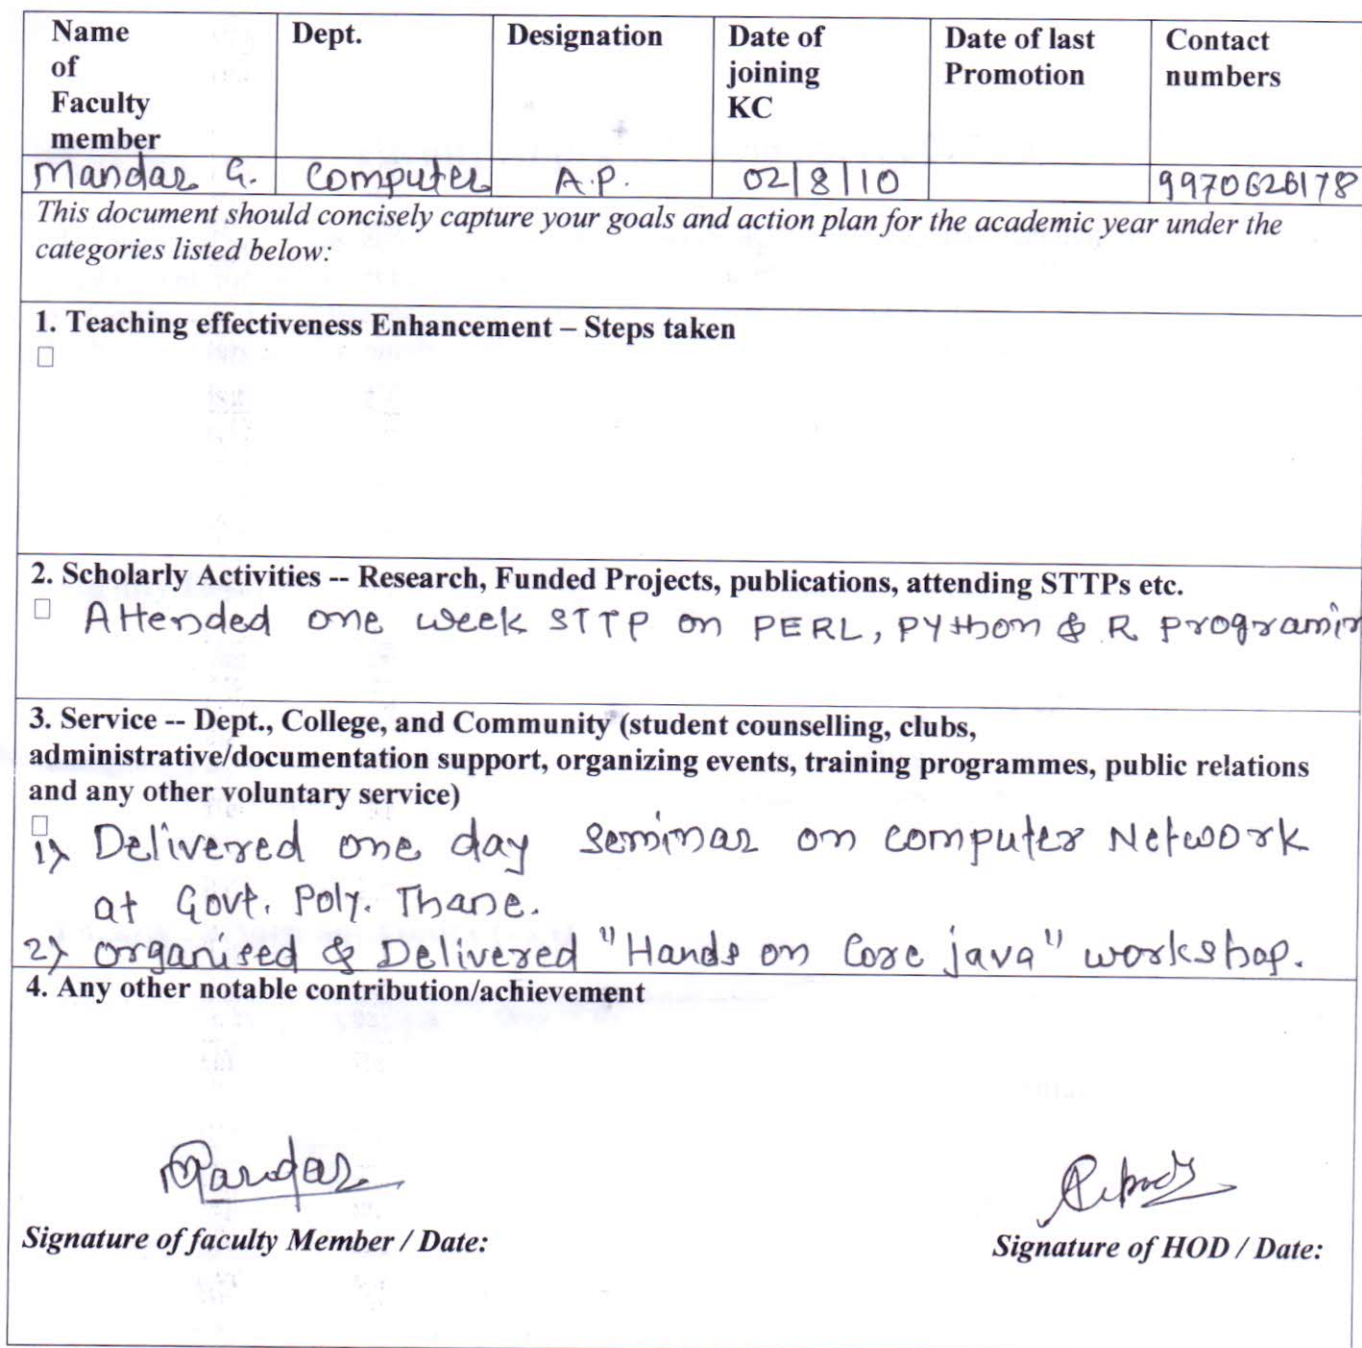 Name of Faculty member
Dept.
Designation
Date of joining KC
Date of last Promotion
Contact numbers
Mandar G.
Computer
A.P.
02/8/10
9970626178
This document should concisely capture your goals and action plan for the academic year under the
categories listed below:
1. Teaching effectiveness Enhancement – Steps taken
2. Scholarly Activities -- Research, Funded Projects, publications, attending STTPs etc.
Attended one week STTP on PERL, PYthon & R Programin
3. Service -- Dept., College, and Community (student counselling, clubs,
administrative/documentation support, organizing events, training programmes, public relations
and any other voluntary service)
1) Delivered one day seminar on computer Network
at Govt. Poly. Thane.
2) organised & Delivered "Hands on Core java" workshop.
4. Any other notable contribution/achievement
Mandar
Signature of faculty Member / Date:
Signature of HOD / Date: